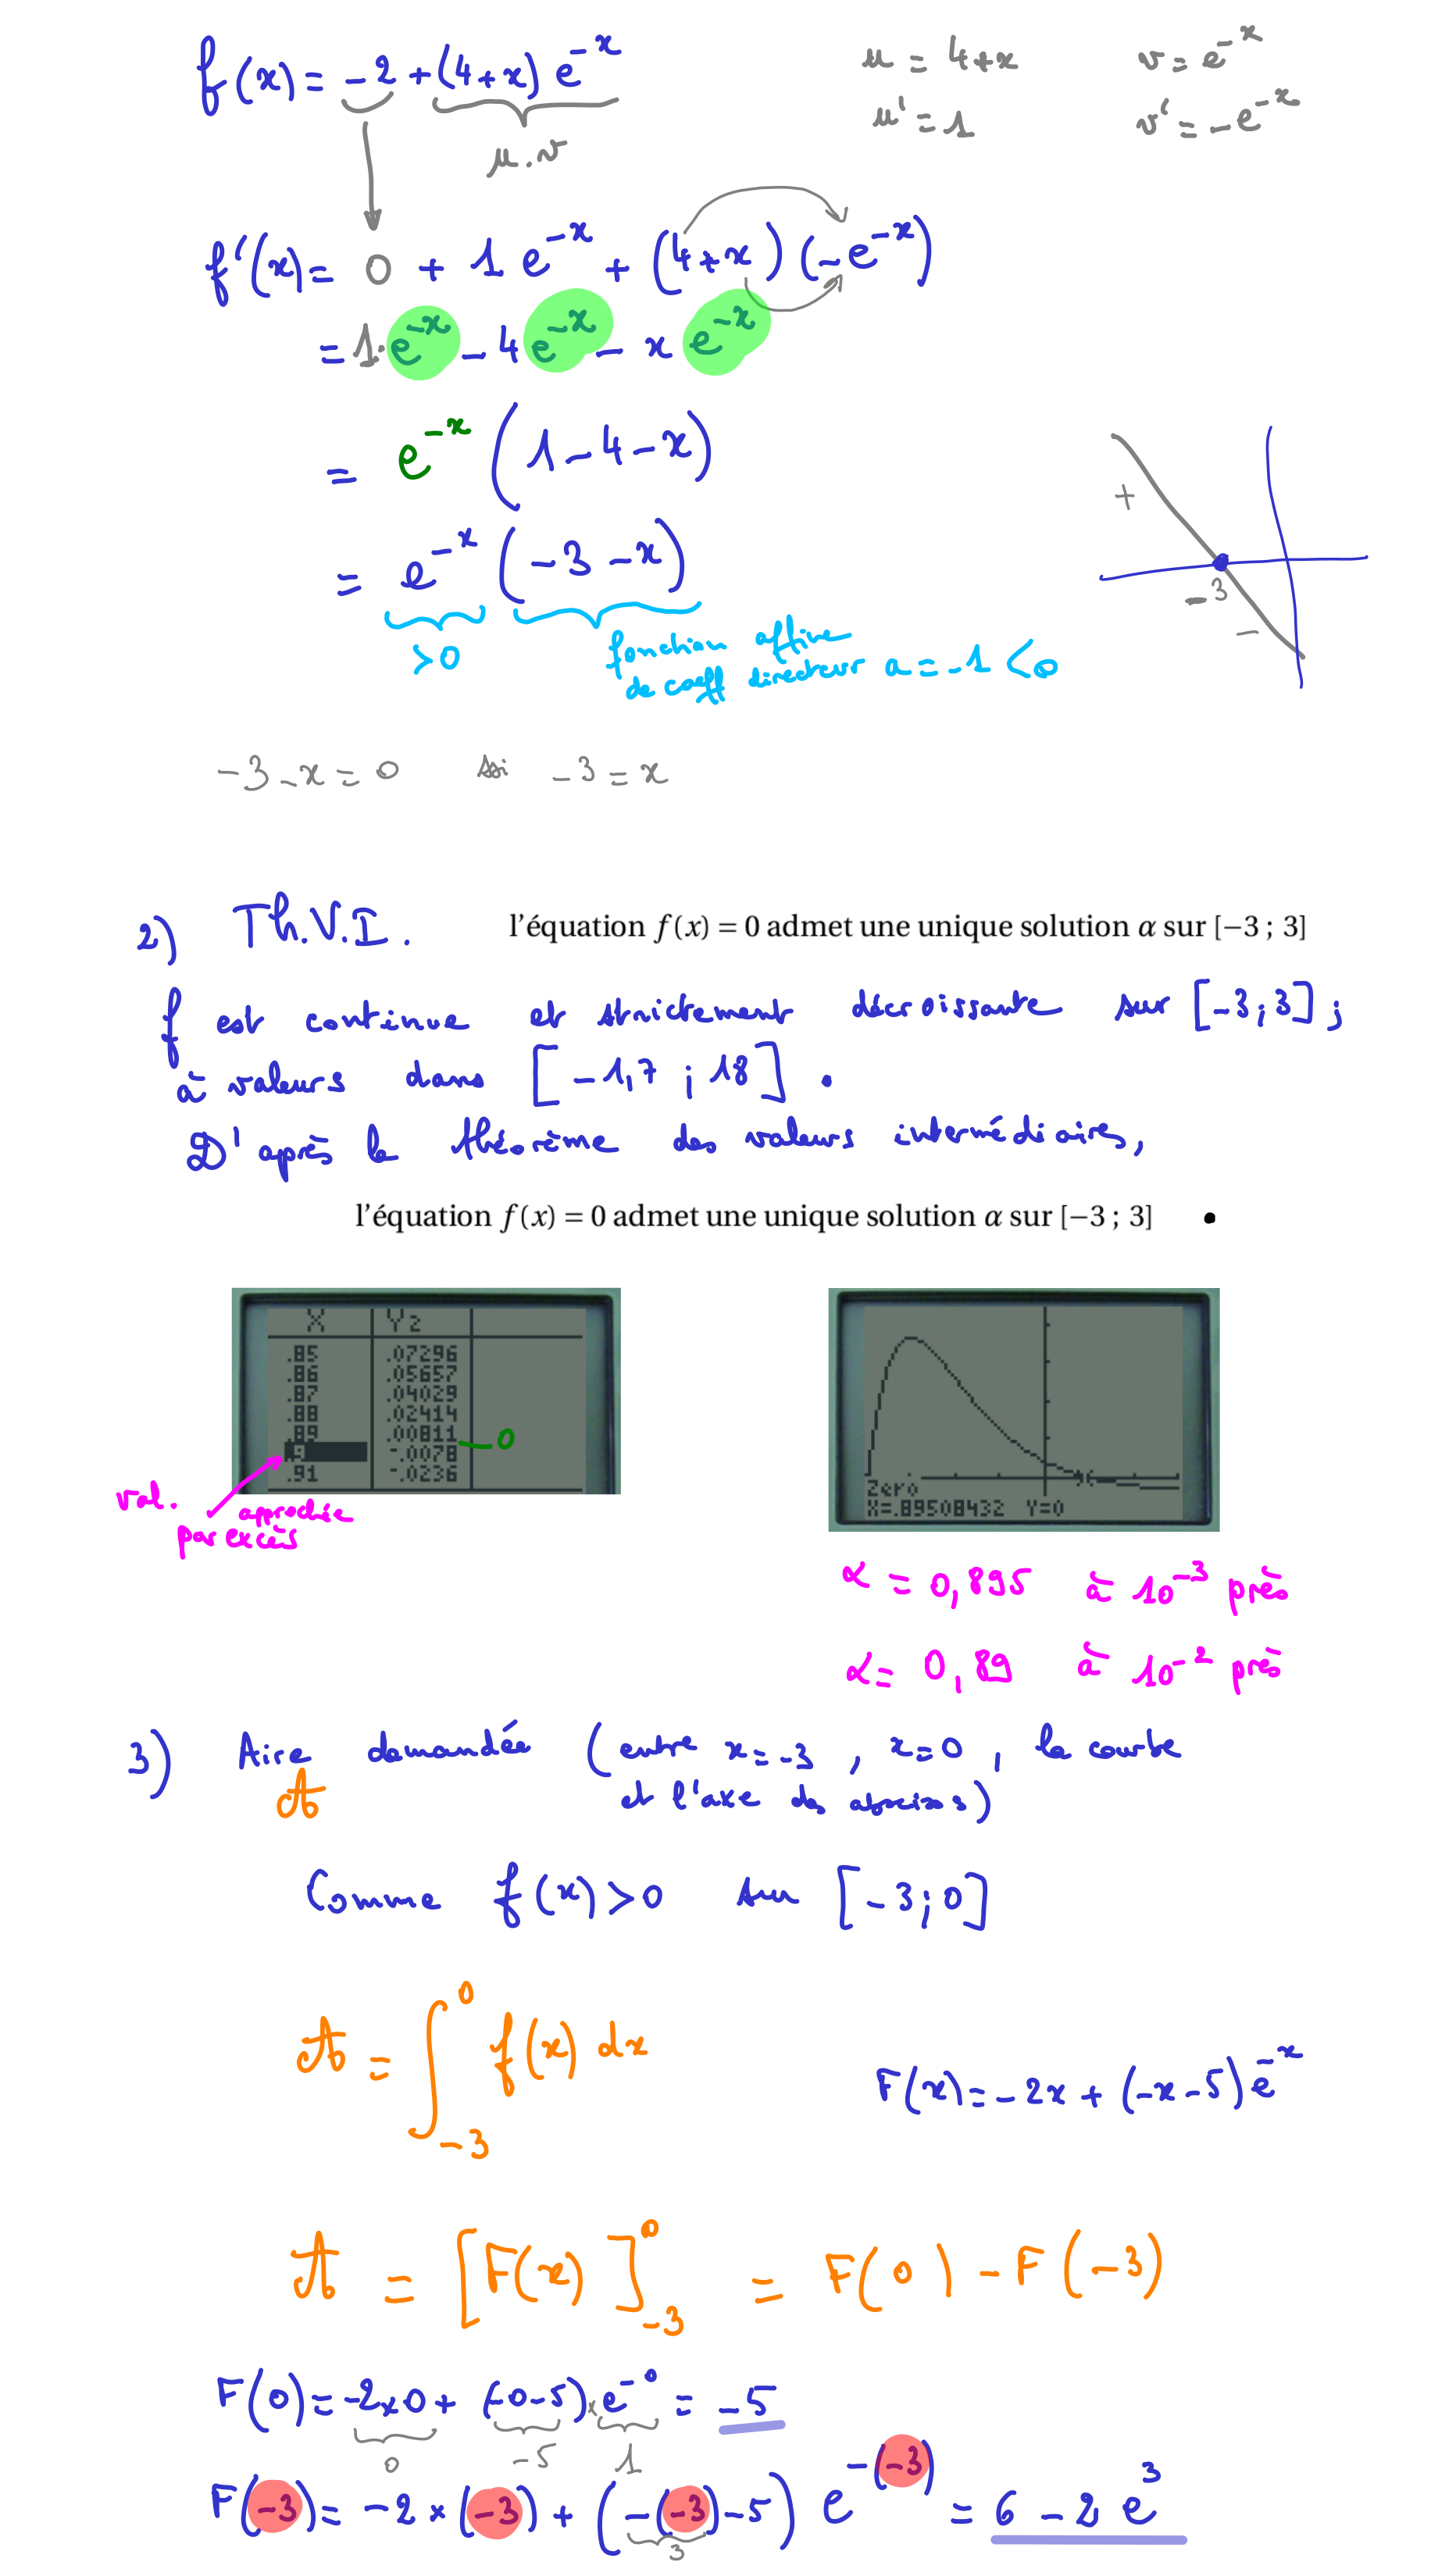 f(x) = -2 + (4+x) e^{-x}
u = 4+x v = e^{-x}
u' = 1 v' = -e^{-x}
u.v
f'(x) = 0 + 1 e^{-x} + (4+x) (-e^{-x})
= 1.e^{-x} - 4 e^{-x} - x e^{-x}
= e^{-x} (1 - 4 - x)
= e^{-x} (-3 - x)
+
-3
-
>0
fonction affine
de coeff directeur a = -1 < 0
-3 - x = 0 ssi -3 = x
2) Th.V.I. l'équation f(x) = 0 admet une unique solution α sur [−3 ; 3]
f est continue et strictement décroissante sur [-3 ; 3] ;
à valeurs dans [-1,7 ; 18] .
D'après le théorème des valeurs intermédiaires,
l'équation f(x) = 0 admet une unique solution α sur [−3 ; 3] .
X Y2
.85 .07296
.86 .05657
.87 .04029
.88 .02414
.89 .00811
0
.9 -.0078
.91 -.0236
val. approchée
par excès
Zero
X=.89508432 Y=0
α = 0,895 à 10^{-3} près
α = 0,89 à 10^{-2} près
3) Aire demandée (entre x = -3 , x = 0 , la courbe
A et l'axe des abscisses)
Comme f(x) > 0 sur [-3 ; 0]
A = ∫_{-3}^{0} f(x) dx
F(x) = -2x + (-x-5) e^{-x}
A = [F(x)]_{-3}^{0} = F(0) - F(-3)
F(0) = -2×0 + (-0-5) × e^{-0} = -5
0 -5 1
F(-3) = -2 × (-3) + (-(-3)-5) e^{-(-3)} = 6 - 2 e^{3}
3